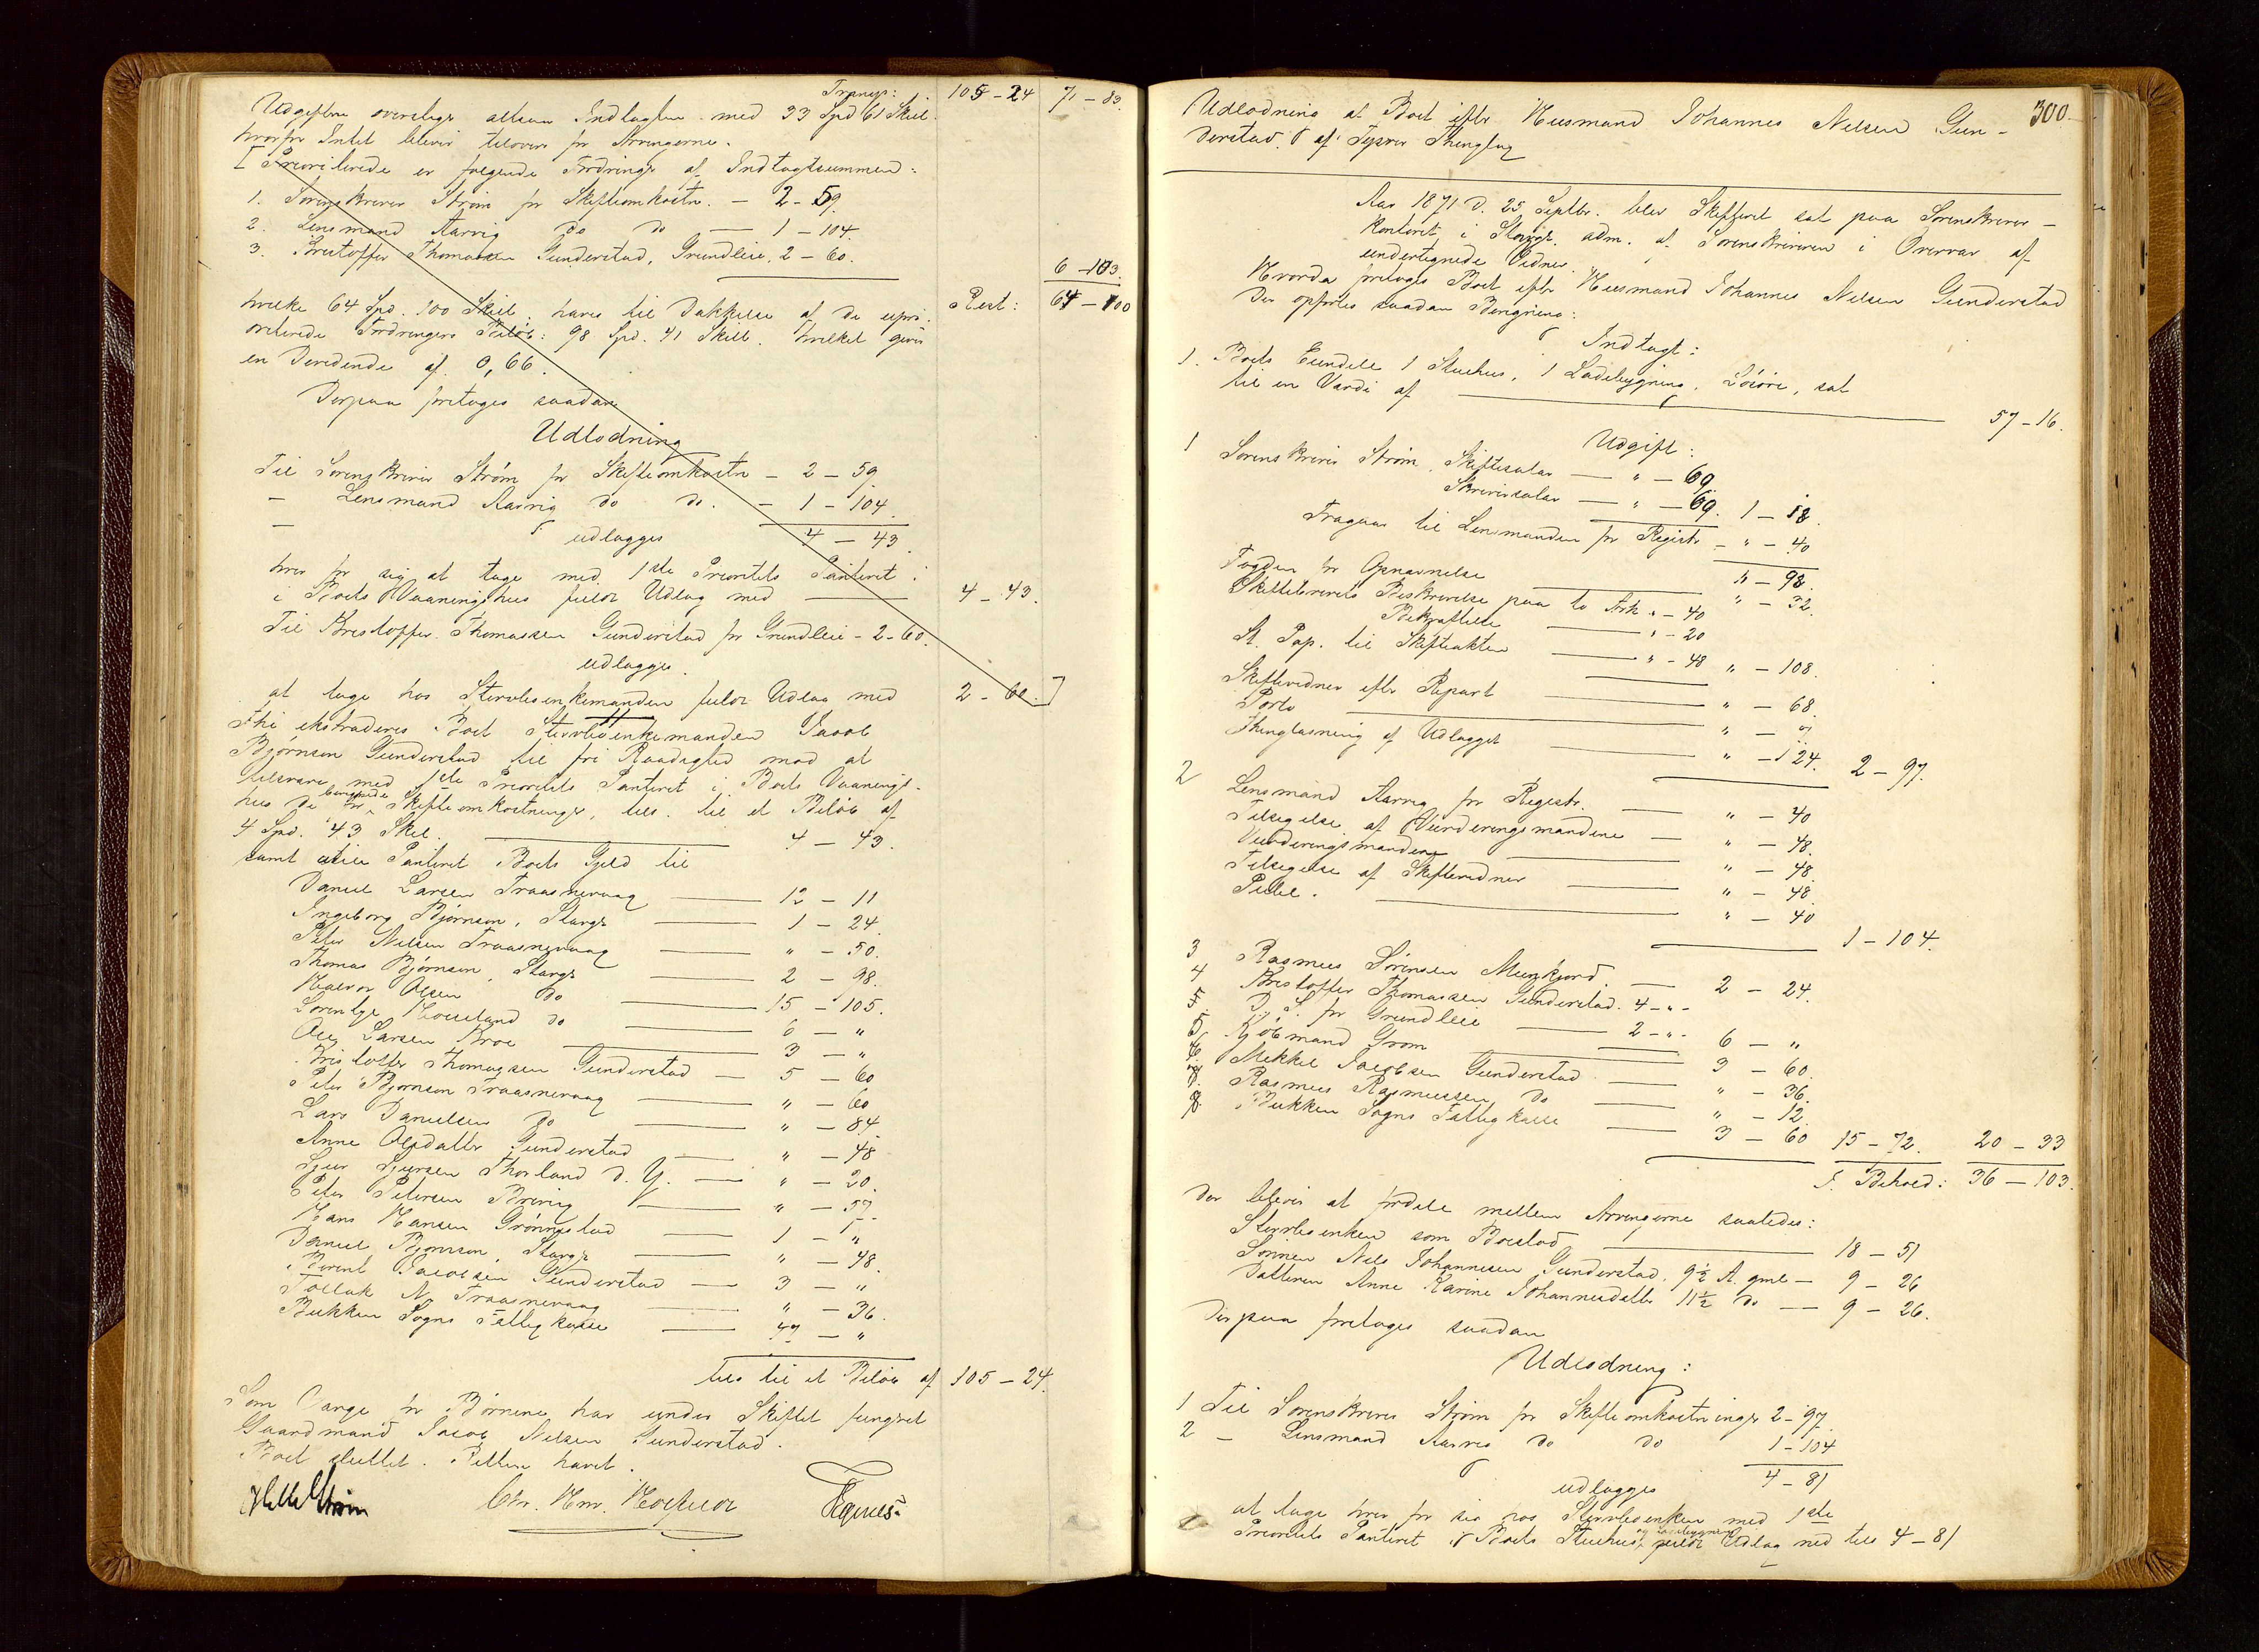 Transp: 105 – 24 71 – 83.
Udgifterne overstige altsaa Indtægterne med 33 Spd 61 Skill.
hvorfor Intet bliver tilovers for Arvingerne.
[Prioriterede er følgende Fordringer af Indtægtssummen:
1. Sorenskriver Strøm for Skifteomkostn. – 2 – 59.
2. Lensmand Aarvig do do – 1 – 104.
3. Kristoffer Thomassen Gunderstad, Grundleie, 2 – 60.
6 – 103.
hvilke 64 Spd. 100 Skill. haves til Dækkelse af de upri- Rest: 64 – 100
oriterede Fordringers Beløb: 98 Spd. 41 Skill. hvilket giver
en Dividende af 0,66.
Derpaa foretoges saadan
Udlodning
Til Sorenskriver Strøm for Skifteomkostn – 2 – 59
– Lensmand Aarvig do do. – 1 – 104.
udlægges 4 – 43.
hver for sig at tage med 1ste Prioritets Panteret
i Boets Vaaningshus fuldt Udlæg med 4 – 43.
Til Kristoffer Thomassen Gunderstad for Grundleie – 2 – 60.
udlægges
at tage hos Stervboenkemanden fuldt Udlæg med 2 – 60.]
Thi ekstraderes Boet Stervboenkemanden Jacob
Bjørnsen Gunderstad til fri Raadighed mod at
tilsvare med 1ste Prioritets Panteret i Boets Vaanings-
hus de beregnede Skifteomkostninger, tils. til et Beløb af
4 Spd. 43 Skil. 4 – 43.
samt uden Panteret Boets Gjeld til
Daniel Larsen Traasnevaag 12 – 11
Ingeborg Bjørnsen, Stange 1 – 24.
Peter Nilsen Traasnevaag " – 50.
Thomas Bjørnsen, Stange 2 – 98.
Halvor Olsen do 15 – 105.
Lorentze Hoveland do 6 – "
Ole Larsen Broe 3 – "
Kristoffer Thomassen Gunderstad 5 – 60
Peter Bjørnsen Traasnevaag " – 60
Lars Danielsen do " – 84
Anne Olsdatter Gunderstad " – 48
Sjur Sjursen Thorland d. Y. " – 20.
Peter Petersen Brevig " – 57
Hans Hansen Grønnestad 1 – "
Daniel Bjørnsen, Stange " – 48.
Berent Jacobsen Gunderstad 3 – "
Tollak N. Traasnevaag " – 36.
Bukken Sogns Fattigkasse 47 – "
tils til et Beløb af 105 – 24.
Som Værge for Børnene har under Skiftet fungeret
Gaardmand Jacob Nilsen Gunderstad.
Boet sluttet. Retten hævet.
Strøm Chr. Hvr.
300.
Udlodning at Boet efter Huusmand Johannes Nilsen Gun-
derstad af Tysvær Thinglag
Aar 1871 d. 25 Septbr. blev Skifteret sat paa Sorenskriver-
kontoret i adm. af Sorenskriveren i Overvær af
undertegnede Vidner.
Hvorda foretoges Boet efter Huusmand Johannes Nilsen Gunderstad
Der opførtes saadan Beregning:
Indtægt:
1. Boets Eiendele 1 Stuehus, 1 Ladebygning, Løsøre, sat
til en Værdi af 57 – 16.
Udgift:
1 Sorenskriver Strøm, Skiftesalær " – 69.
Skriversalær " – 69. 1 – 18.
Fragaar til Lensmanden for Registr – " – 40
" – 98.
Fogden for Opnævnelse " – 32.
Skiftebrevets Beskrivelse paa to Ark " – 40
Bekræftelse " – 20
St. Pap. til Skifteakten " – 48 " – 108.
Skiftevidner efter Repart " – 68.
Porto " –
Thinglæsning af Udlægget " – 124. 2 – 97.
2 Lensmand Aarvig for Registr. " – 40
Tilsigelse af Vurderingsmændene " – 48.
Vurderingsmændene " – 48.
Tilsigelse af Skiftevidner " – 48.
" – 40
1 – 104.
3 Rasmus Sørensen 2 – 24.
4 Kristoffer Thomassen Gunderstad. 4 – " –
D. S. for Grundleie 2 – " – 6 – "
5 Kjøbmand 3 – 60.
6 Mikkel Jacobsen Gunderstad " – 36.
7. Rasmus Rasmussen do " – 12.
8. Bukken Sogns Fattigkasse 3 – 60 15 – 72. 20 – 33
I Behold: 36 – 103.
der bliver at fordele mellem Arvingerne saaledes:
Stervboenken som Boeslod 18 – 51
Sønnen Nils Johannesen Gunderstad, 9½ A. gml – 9 – 26
Datteren Anne Karine Johannesdatter 11½ do – 9 – 26.
Derpaa foretoges saadan
Udlodning:
1 Til Sorenskriver Strøm for Skifteomkostninger 2 – 97
2 – Lensmand Aarvig do do 1 – 104
udlægges 4 – 81
at tage hver for sig hos Stervboenken med 1ste
Prioritets Panteret i Boets Stuehus og Ladebygning fuldt Udlæg med tils 4 – 81